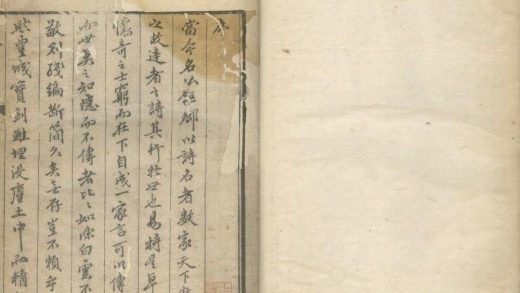 序
當今名公鉅卿以詩名者數家天下
之故達者之詩其行於世也易特是早
懷奇之士窮而在下自成一家言可以傳
而世莫之知隱而不傳者比比如深白雲不
敲刻殘編斷簡久矣無存豈不賴乎
然豐城寶劍雖埋沒塵土中而精